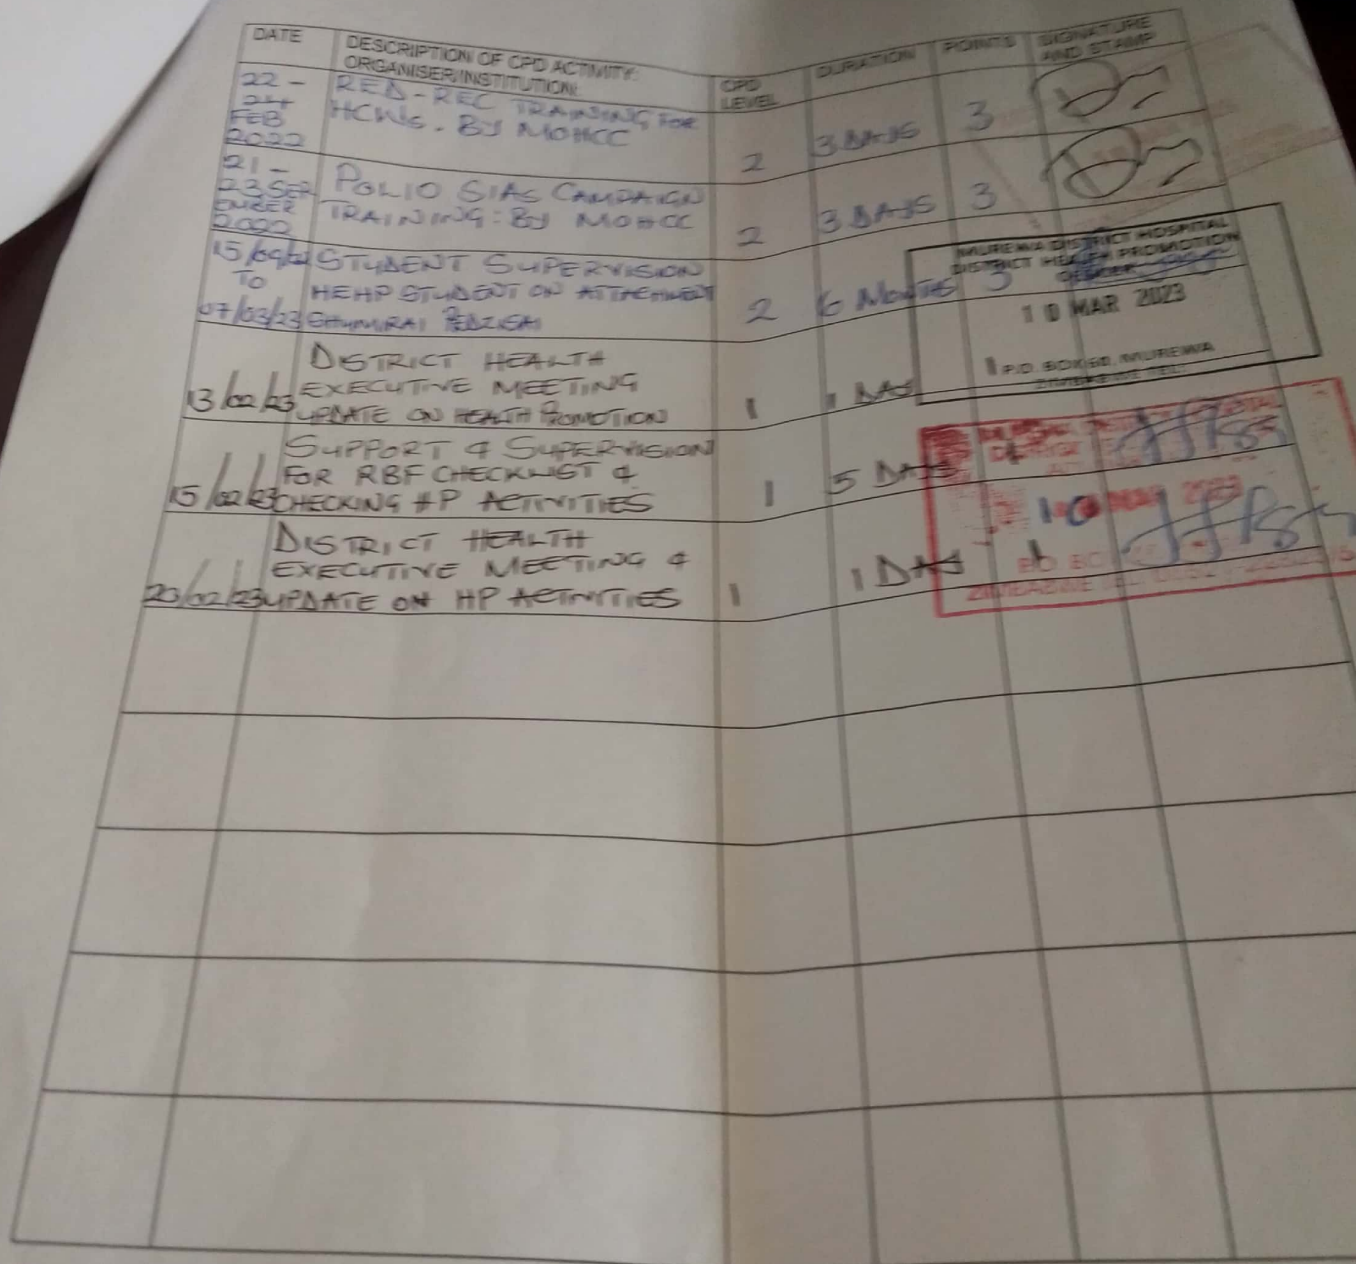 DATE
DESCRIPTION OF CPD ACTIVITY:
ORGANISER/INSTITUTION:
CPD
LEVEL
DURATION
POINTS
SIGNATURE
AND STAMP
22 -
24
FEB
2022
RED-REC TRAINING FOR
HCWs. BY MOHCC
2
3 DAYS
3
21 -
23 SEPT
EMBER
2022
POLIO SIAS CAMPAIGN
TRAINING: BY MOHCC
2
3 DAYS
3
15/09/22
TO
07/03/23
STUDENT SUPERVISION
HEHP STUDENT ON ATTACHMENT
2
6 MONTHS
3
MUREWA DISTRICT HOSPITAL
DISTRICT HEALTH PROMOTION
OFFICER
10 MAR 2023
P.O. BOX 60, MUREWA
ZIMBABWE TEL:
13/02/23
DISTRICT HEALTH
EXECUTIVE MEETING
UPDATE ON HEALTH PROMOTION
1
1 DAY
15/02/23
SUPPORT & SUPERVISION
FOR RBF CHECKLIST &
CHECKING HP ACTIVITIES
1
5 DAYS
10 MAR 2023
ZIMBABWE
23/02/23
DISTRICT HEALTH
EXECUTIVE MEETING &
UPDATE ON HP ACTIVITIES
1
1 DAY
1